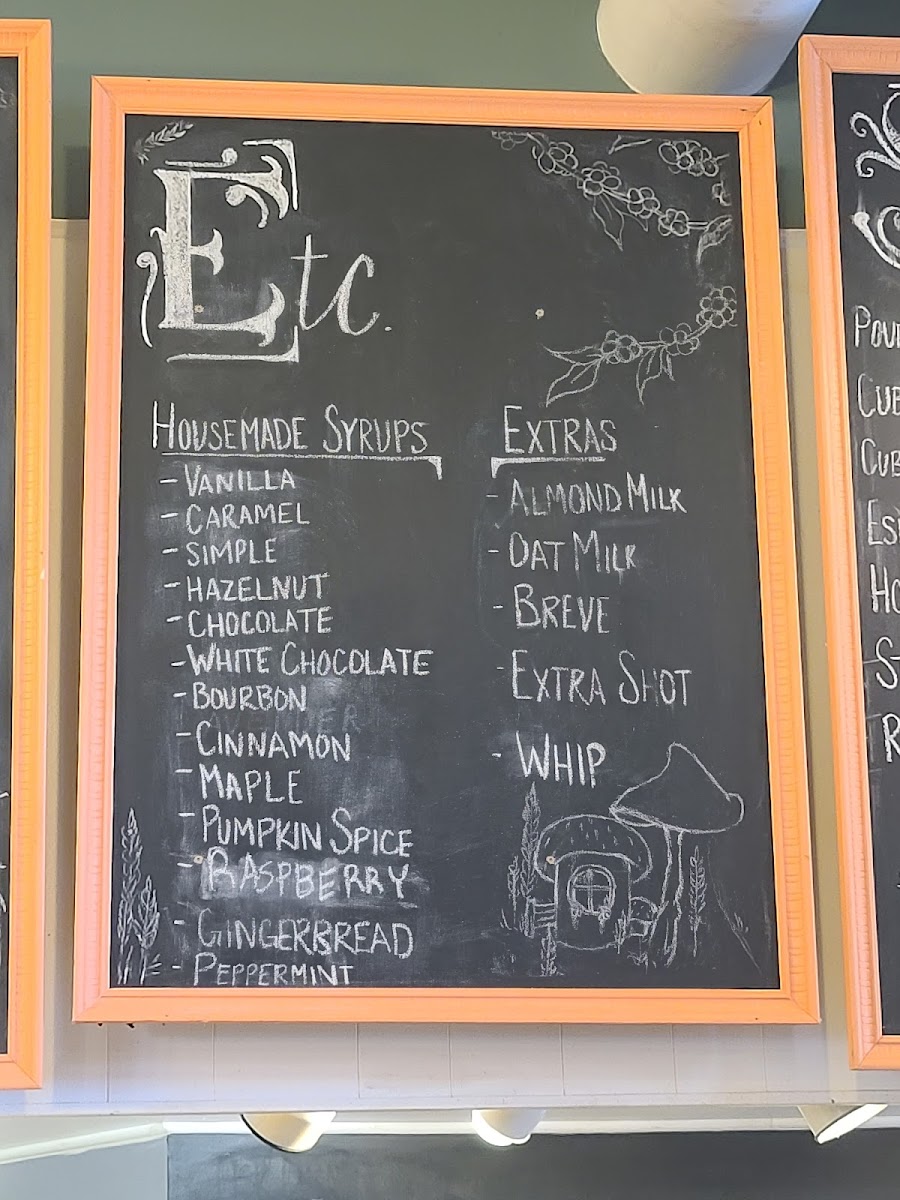 Etc.
HOUSEMADE SYRUPS
- VANILLA
- CARAMEL
- SIMPLE
- HAZELNUT
- CHOCOLATE
- WHITE CHOCOLATE
- BOURBON
- CINNAMON
- MAPLE
- PUMPKIN SPICE
- RASPBERRY
- GINGERBREAD
- PEPPERMINT
EXTRAS
- ALMOND MILK
- OAT MILK
- BREVE
- EXTRA SHOT
- WHIP